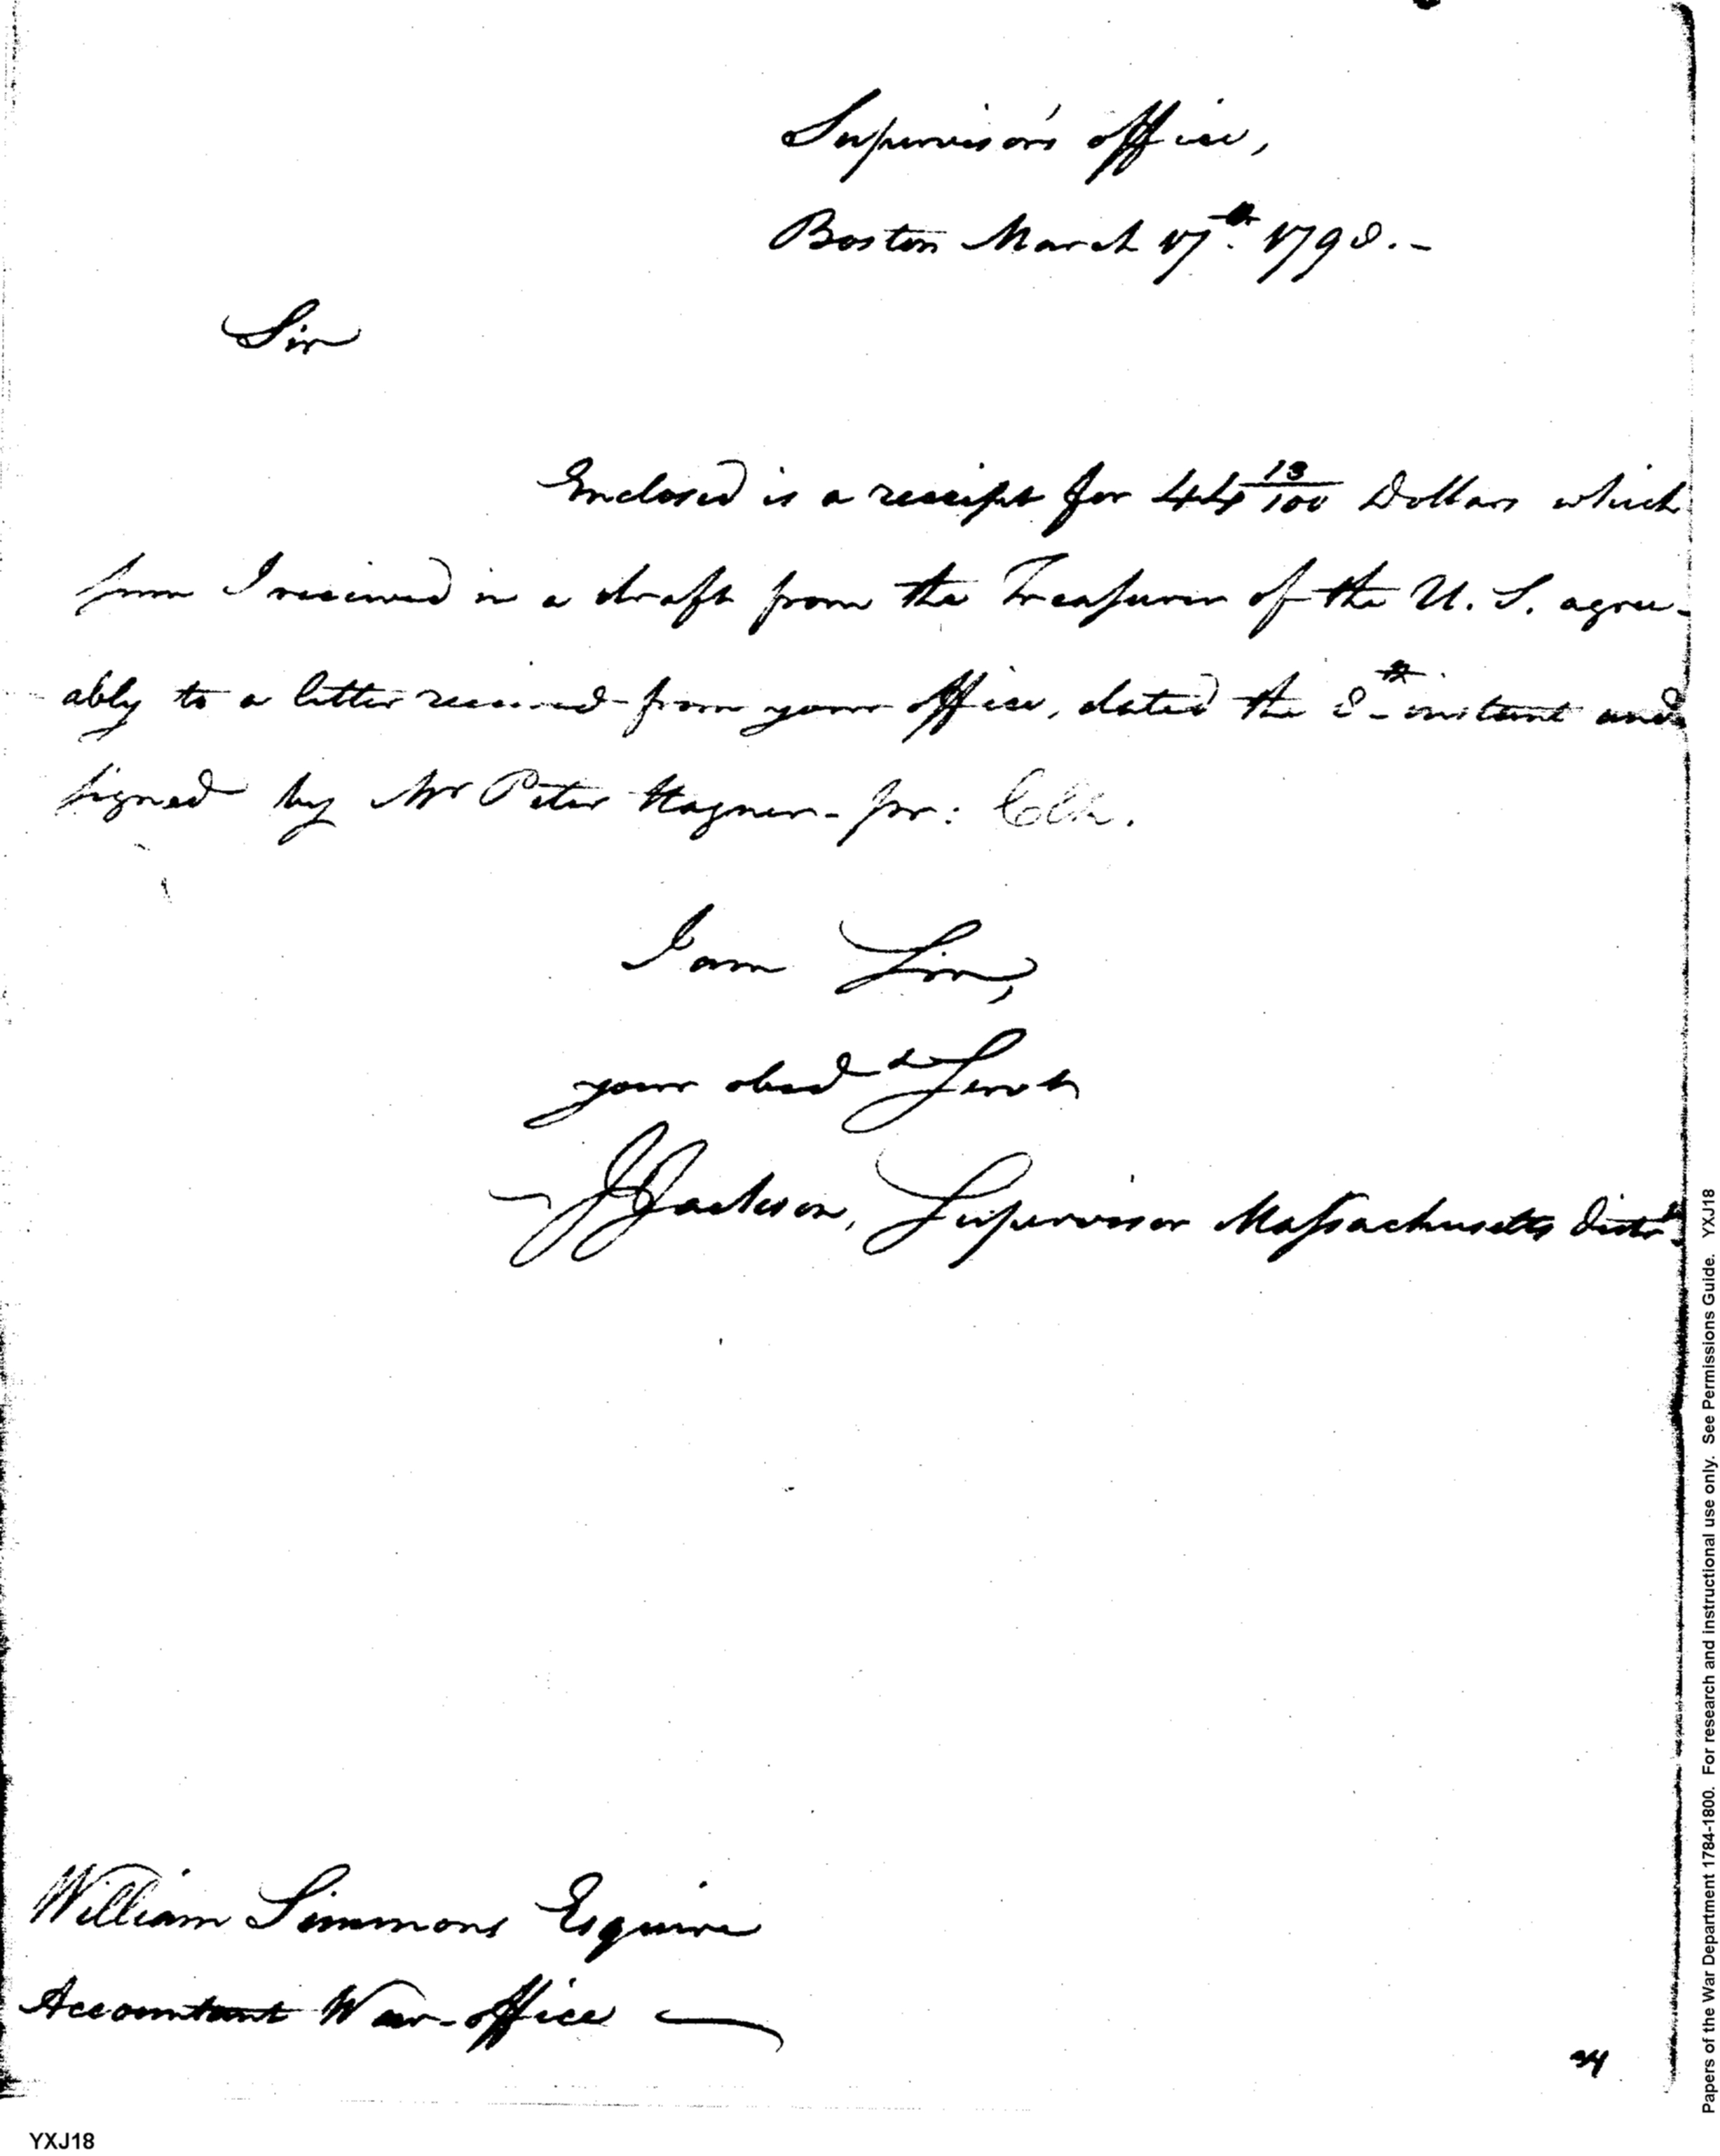 Supervisor's office,
Boston March 17th. 1798.-
Sir
Enclosed is a receipt for 44 13/100 Dollars which
sum I received in a draft from the Treasurer of the U. S. agree-
ably to a letter received from your office, dated the 8th instant and
signed by Mr Peter Hagner - jnr: Clk.
I am Sir,
your obedt Servt
J Jackson, Supervisor Massachusetts distt.
William Simmons Esquire
Accountant War-office
24
YXJ18
Papers of the War Department 1784-1800. For research and instructional use only. See Permissions Guide. YXJ18